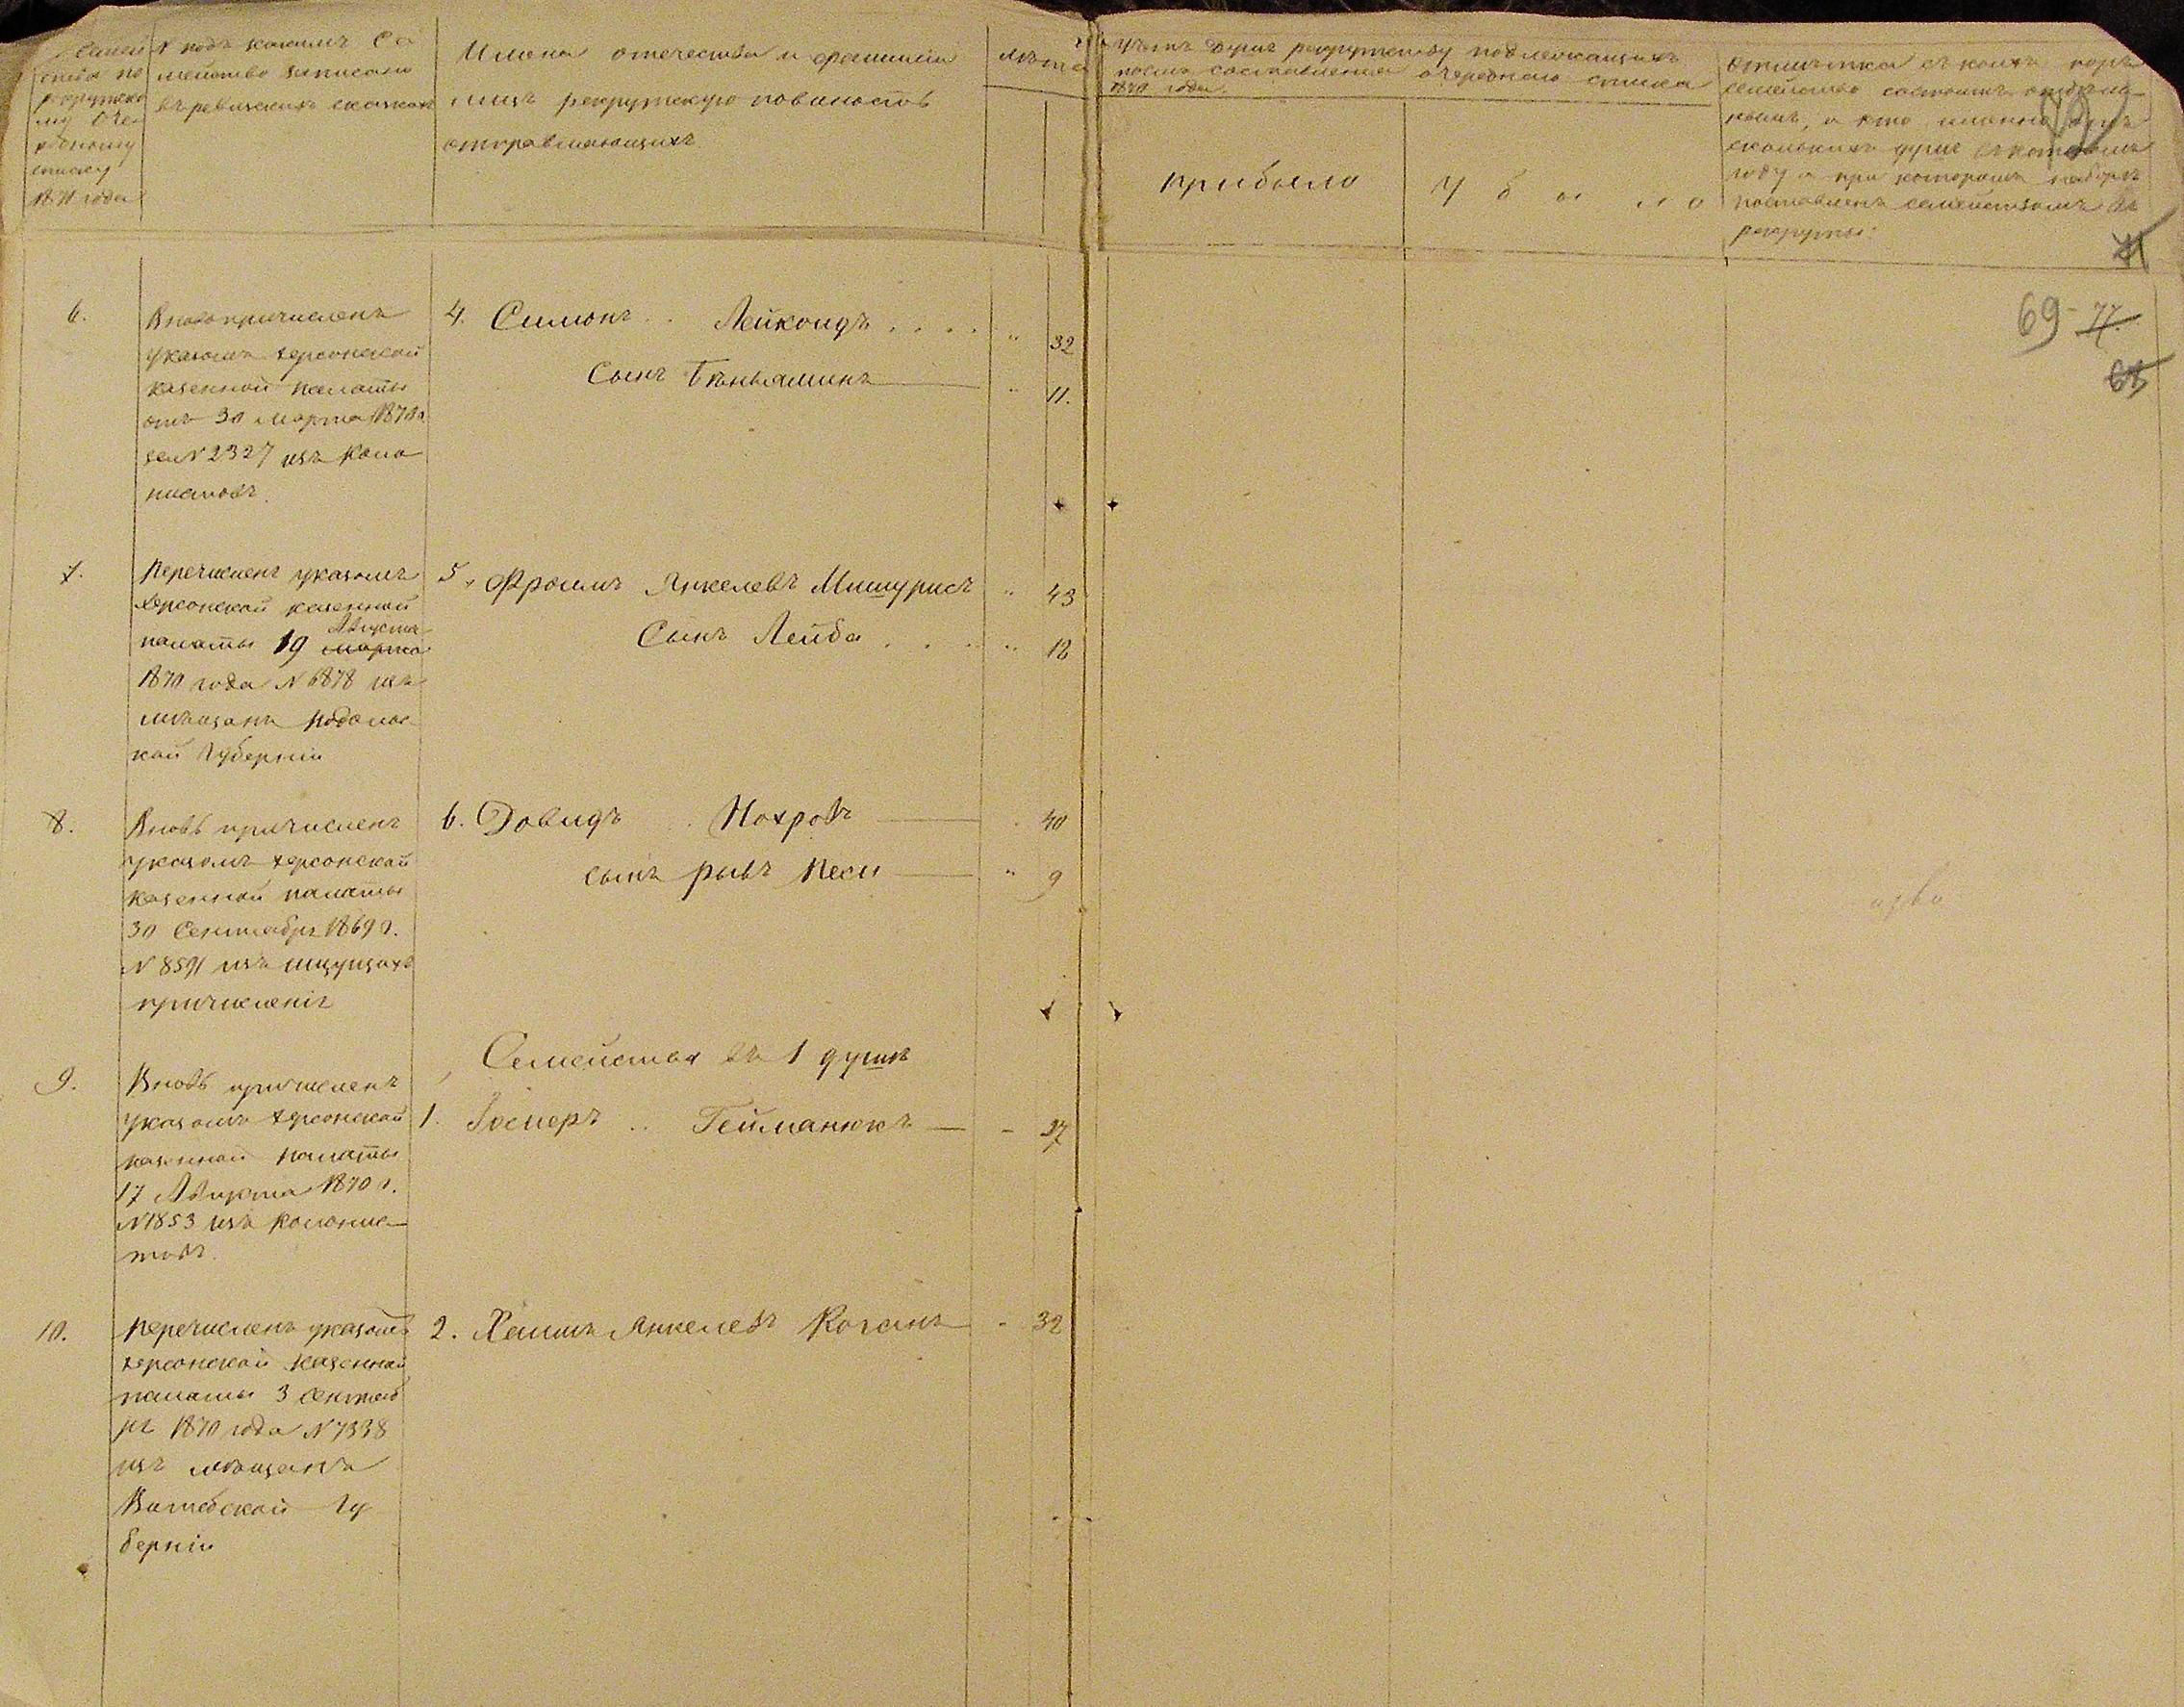 по
рекрутско
му Оче
редному
списку
1871 года
N подъ какимъ Се
мейство записано
въ ревизскихъ сказкахъ
Имена отечества и фамиліи
лицъ рекрутскую повиность
отправляющихъ
лѣта
душъ рекрутству подлежащихъ
послѣ составленія очереднаго списка
года
прибыло
Убыло
Отмѣтка съ коихъ поръ
семейство состоитъ
и кто именно
году и при которомъ наборѣ
поставленъ семействомъ въ
рекруты:
71
69 - 77.
63
6.
Вновь причисленъ
указомъ херсонской
казенной палаты
отъ 30 марта 1870 г.
за N 2327 изъ коло
нистовъ.
4. Симонъ .. Лейкондъ . . . . " 32
Сынъ Беньяминъ — " 11.
7.
Перечисленъ указомъ
херсонской казенной
Августа
палаты 19 марта
1870 года N 6878 изъ
мѣщанъ Подольс
кой Губерніи
5. Фроимъ Янкелевъ Мишурисъ " 43
Сынъ Лейба . . . . " 12
8.
Вновь причисленъ
указомъ херсонской
казенной палаты
30 Сентября 1869 г.
N 8591 изъ ищущихъ
причисленія
6. Довидъ . Нохровъ — 40
сынъ рывъ Песи — " 9
Семейства въ 1 душѣ
9.
Вновь причисленъ
указомъ херсонской
казенной палаты
17 Августа 1870 г.
N 1853 изъ колонис-
товъ.
1. Іосперъ .. Гейманюкъ — - 27
10.
Перечисленъ указомъ
херсонской казенной
палаты 3 Сентяб
ря 1870 года N 7338
изъ мѣщанъ
Витебской Гу
берніи
2. Хаимъ Янкелевъ Коганъ - 32